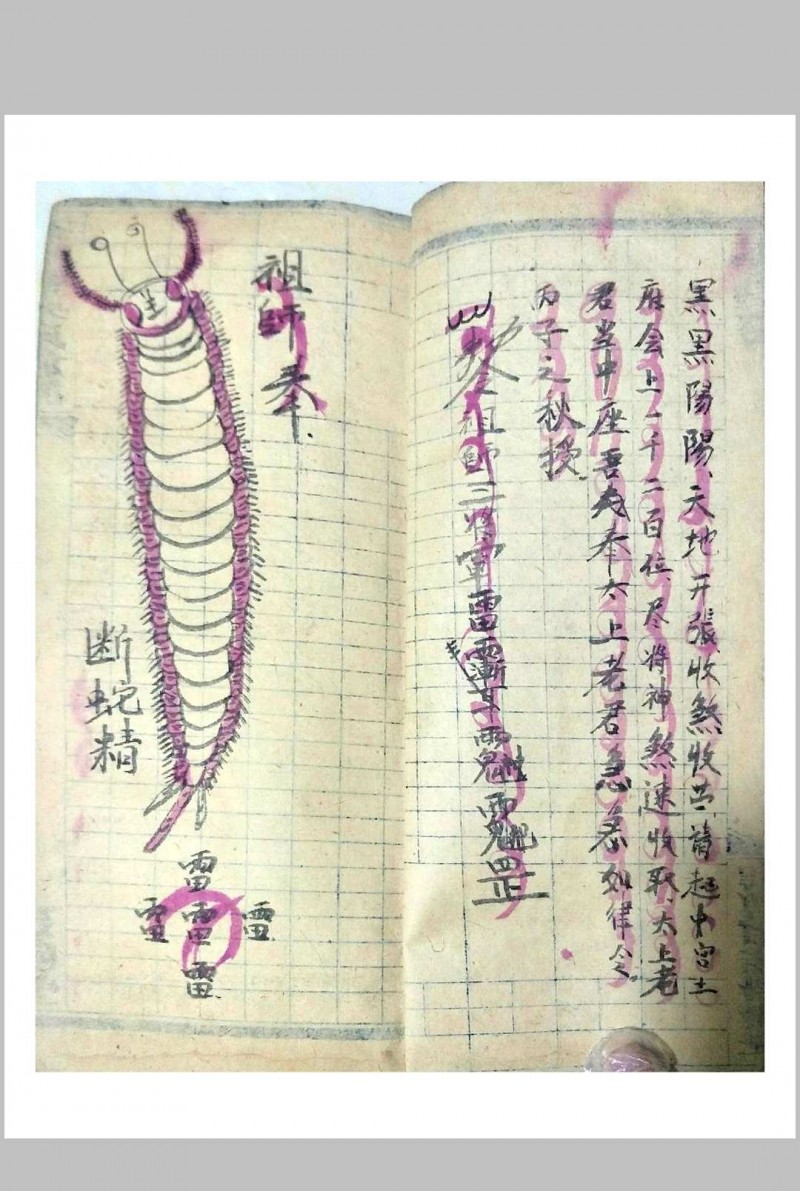 黑黑陽陽、天地开張、收煞收亡、請起中宮土
府会上一千二百位、尽将神煞速收取、太上老
君坐中座吾奉太上老君急急如律令
丙子之秋授
祖師三将軍雷
罡
祖師奉
主
断蛇精
雷
雷雷雷
雷